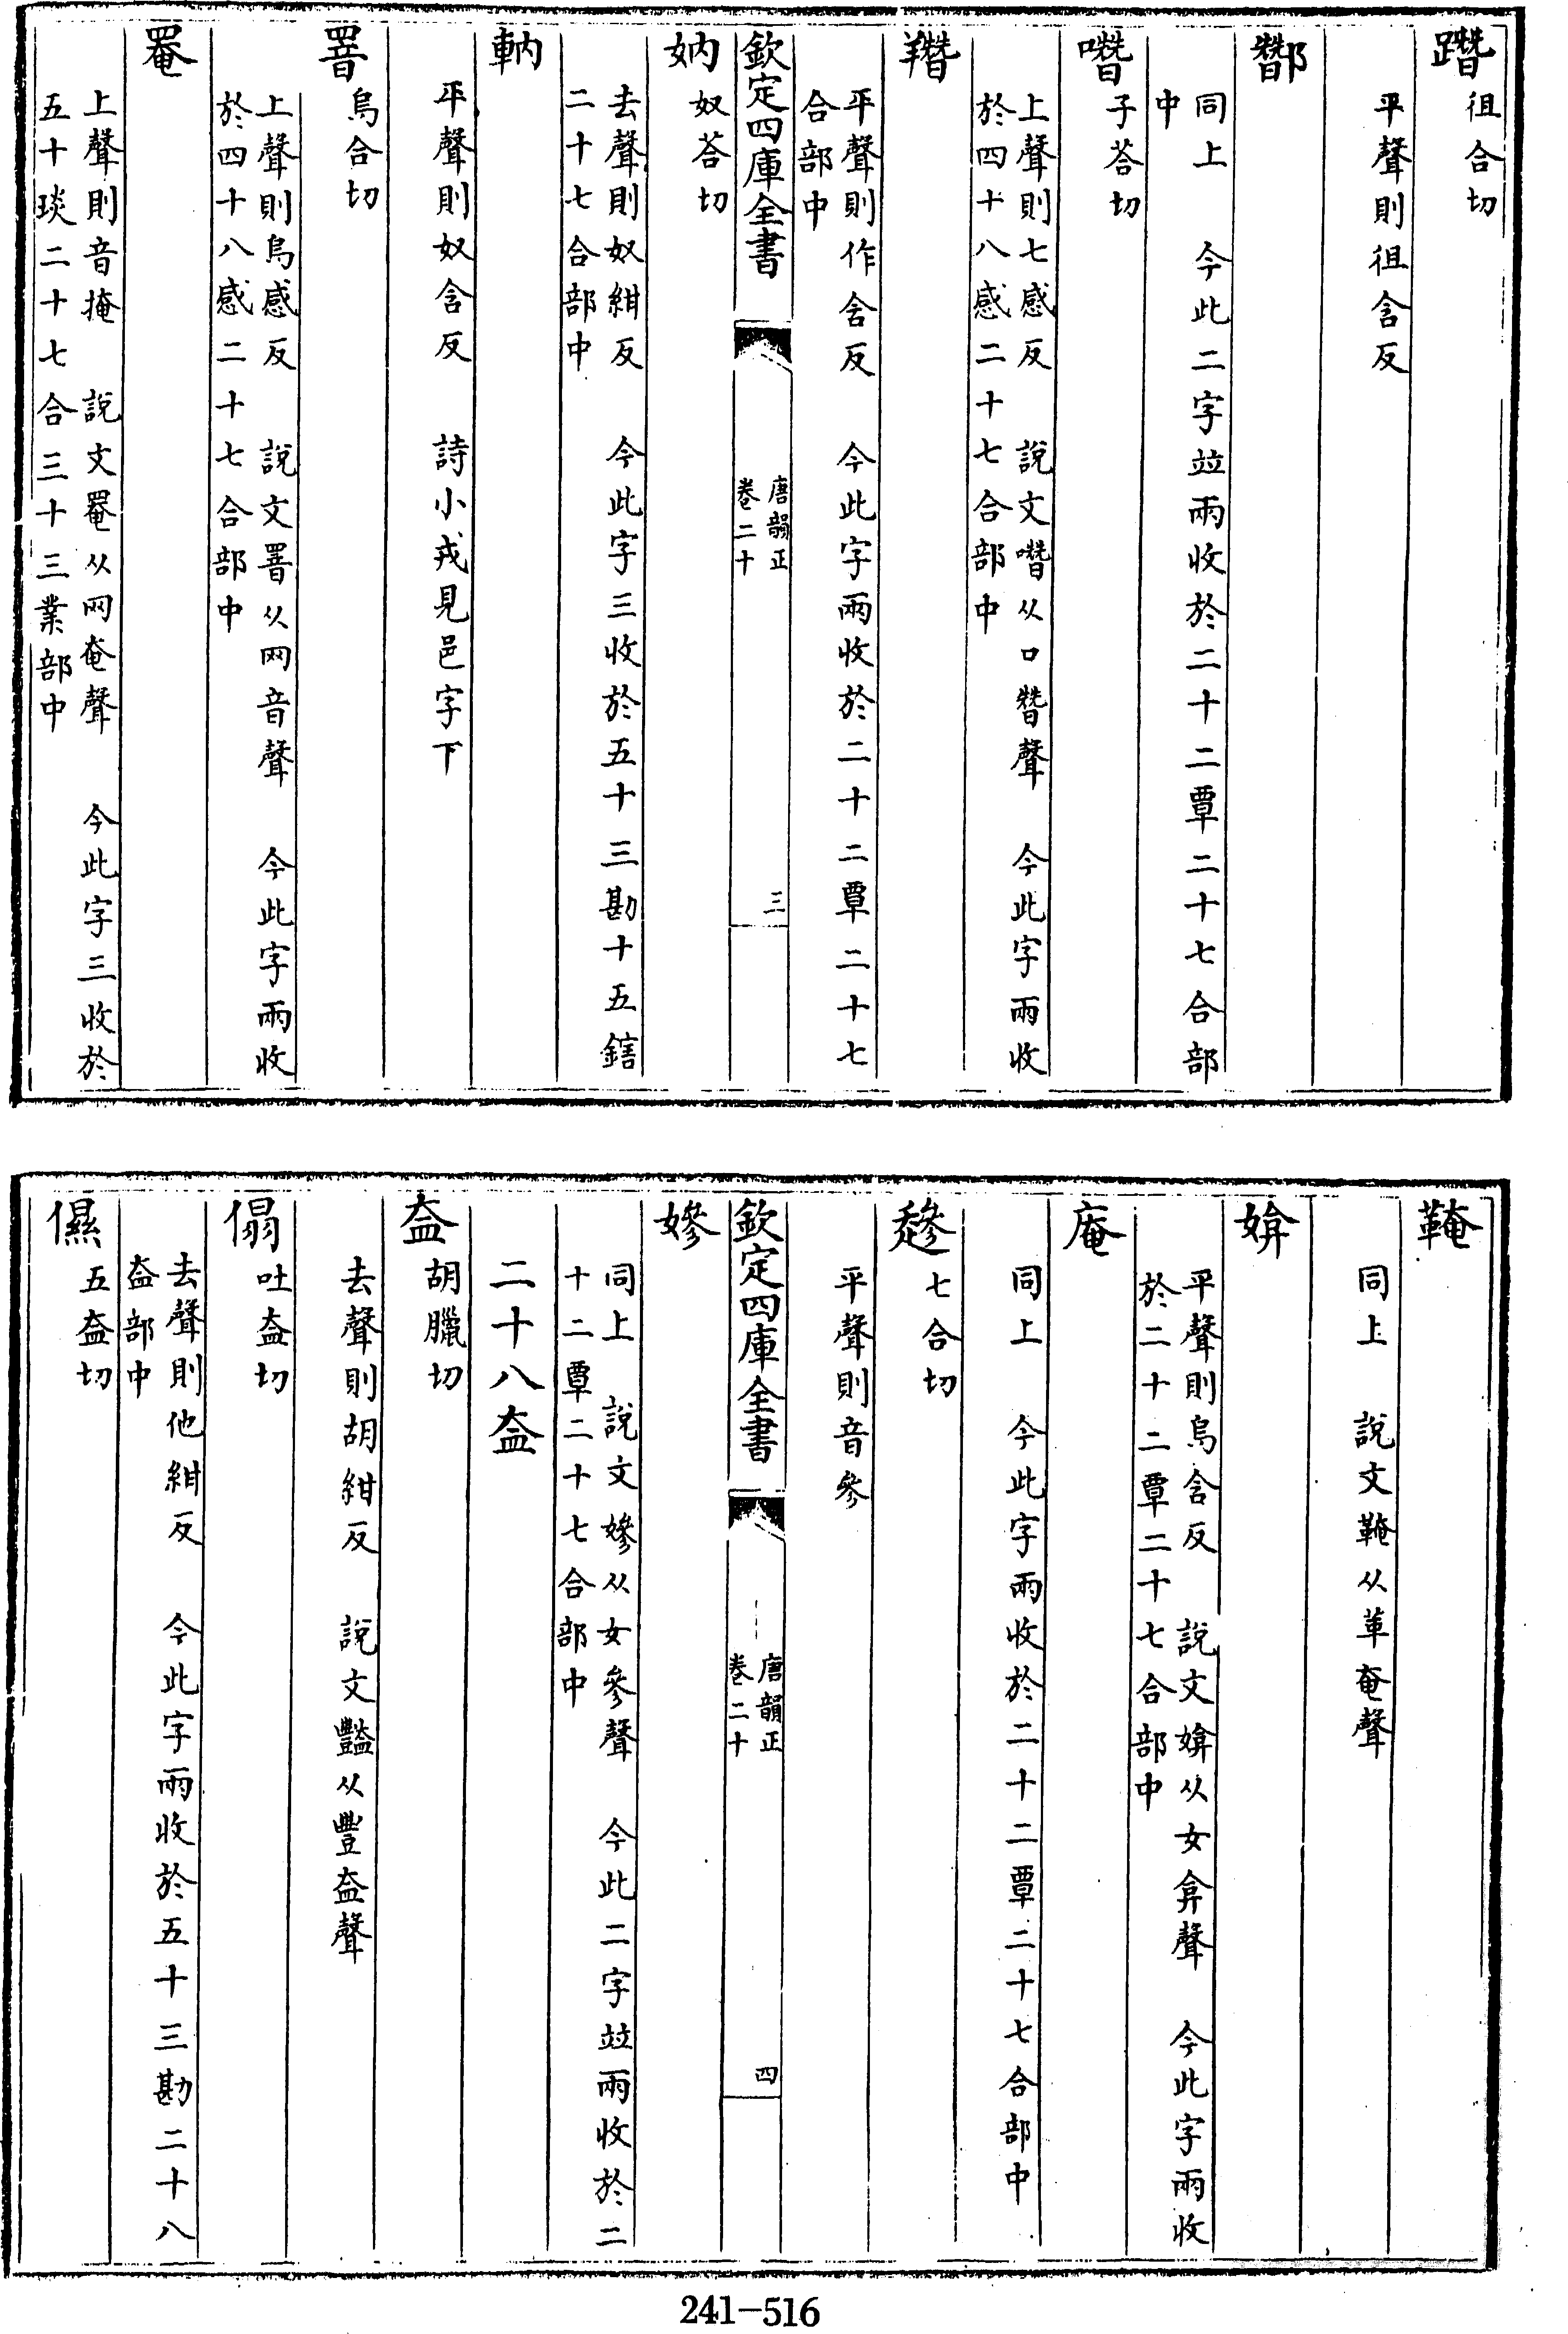 蹔徂合切
平聲則徂含反
酇
同上　今此二字竝兩收於二十二覃二十七合部
中
噆子荅切
上聲則七感反　說文噆从口朁聲　今此字兩收
於四十八感二十七合部中
平聲則作含反　今此字兩收於二十二覃二十七
合部中
欽定四庫全書
唐韻正
卷二十
三
妠奴荅切
去聲則奴紺反　今此字三收於五十三勘十五鎋
二十七合部中
軜
平聲則奴含反　詩小戎見邑字下
罯烏合切
上聲則烏感反　說文罯从网音聲　今此字兩收
於四十八感二十七合部中
罨
上聲則音掩　說文罨从网奄聲　今此字三收於
五十琰二十七合三十三業部中
鞥
同上　說文鞥从革奄聲
媕
平聲則烏含反　說文媕从女弇聲　今此字兩收
於二十二覃二十七合部中
庵
同上　今此字兩收於二十二覃二十七合部中
趁七合切
平聲則音參
欽定四庫全書
唐韻正
卷二十
四
嫪
同上　說文嫪从女參聲　今此二字竝兩收於二
十二覃二十七合部中
二十八盇
盇胡臘切
去聲則胡紺反　說文豔从豐盇聲
傝吐盇切
去聲則他紺反　今此字兩收於五十三勘二十八
盇部中
儑五盇切
241-516